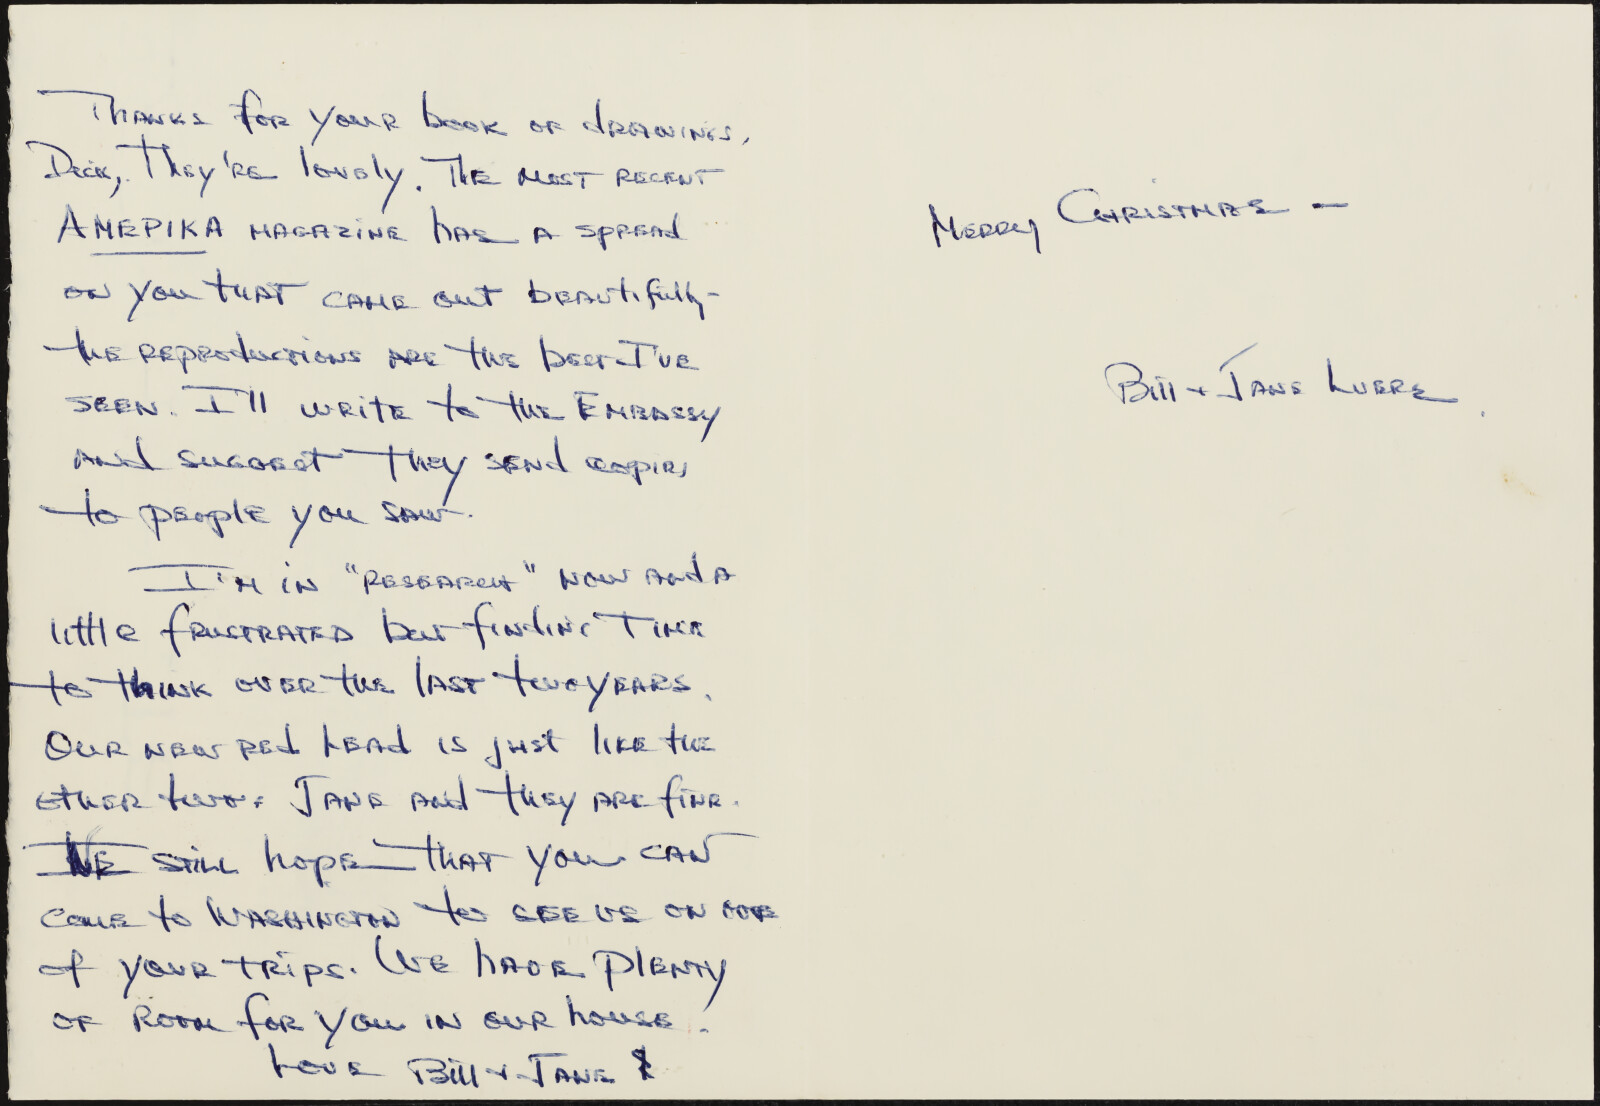 Thanks for your book of drawings,
Dick, They're lovely. The most recent
AMEPIKA magazine has a spread
on you that came out beautifully -
the reproductions are the best I've
seen. I'll write to the Embassy
and suggest they send copies
to people you saw.
I'm in "research" now and a
little frustrated but finding time
to think over the last two years.
Our new red head is just like the
other two. Jane and they are fine.
We still hope that you can
come to Washington to see us on one
of your trips. We have plenty
of room for you in our house.
Love Bill + Jane
Merry Christmas -
Bill + Jane Luers